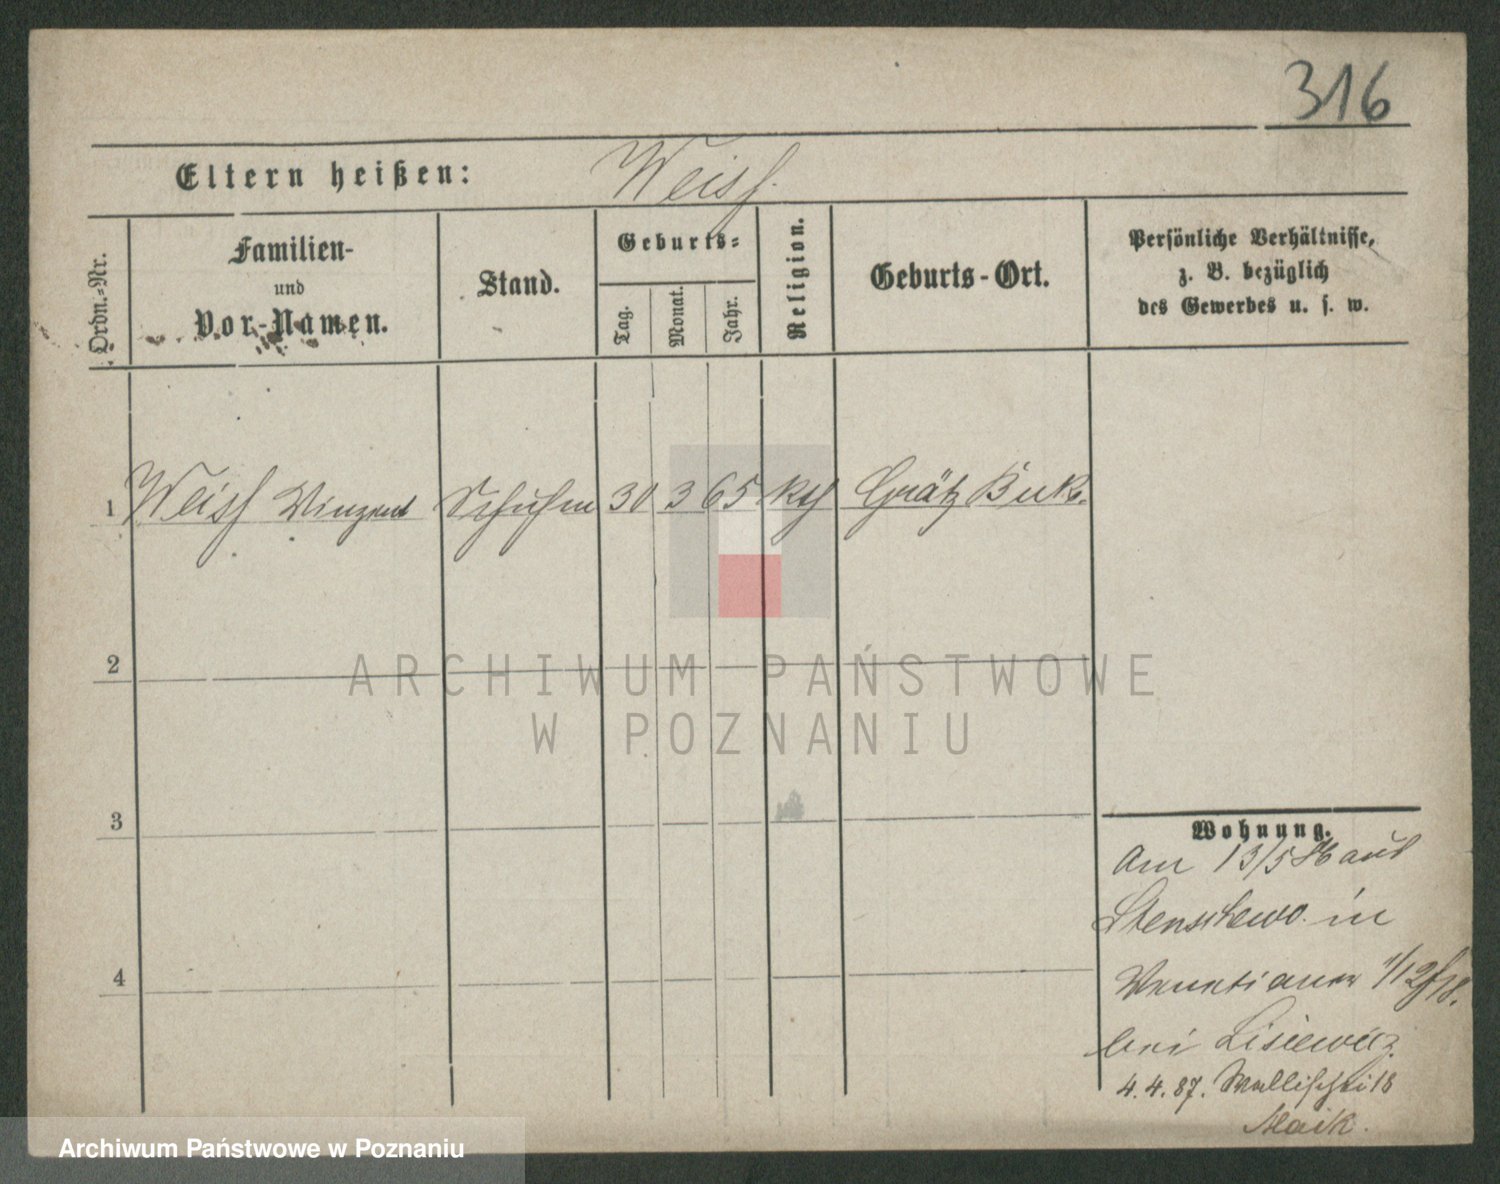 316
Eltern heißen: Weiss.
Ordn.-Nr.
Familien-
und
Vor-Namen.
Stand.
Geburts-
Tag.
Monat.
Jahr.
Religion.
Geburts-Ort.
Persönliche Verhältnisse,
z. B. bezüglich
des Gewerbes u. s. w.
1 Weiss Vinzent 30 3 65 kth Grätz Buk.
2
3
4
ARCHIWUM PAŃSTWOWE
W POZNANIU
Wohnung.
Am 13/5 86 aus
Stenschewo in
Venetianer
bei Lisiewicz
4. 4. 87. Wallischei 18
Archiwum Państwowe w Poznaniu